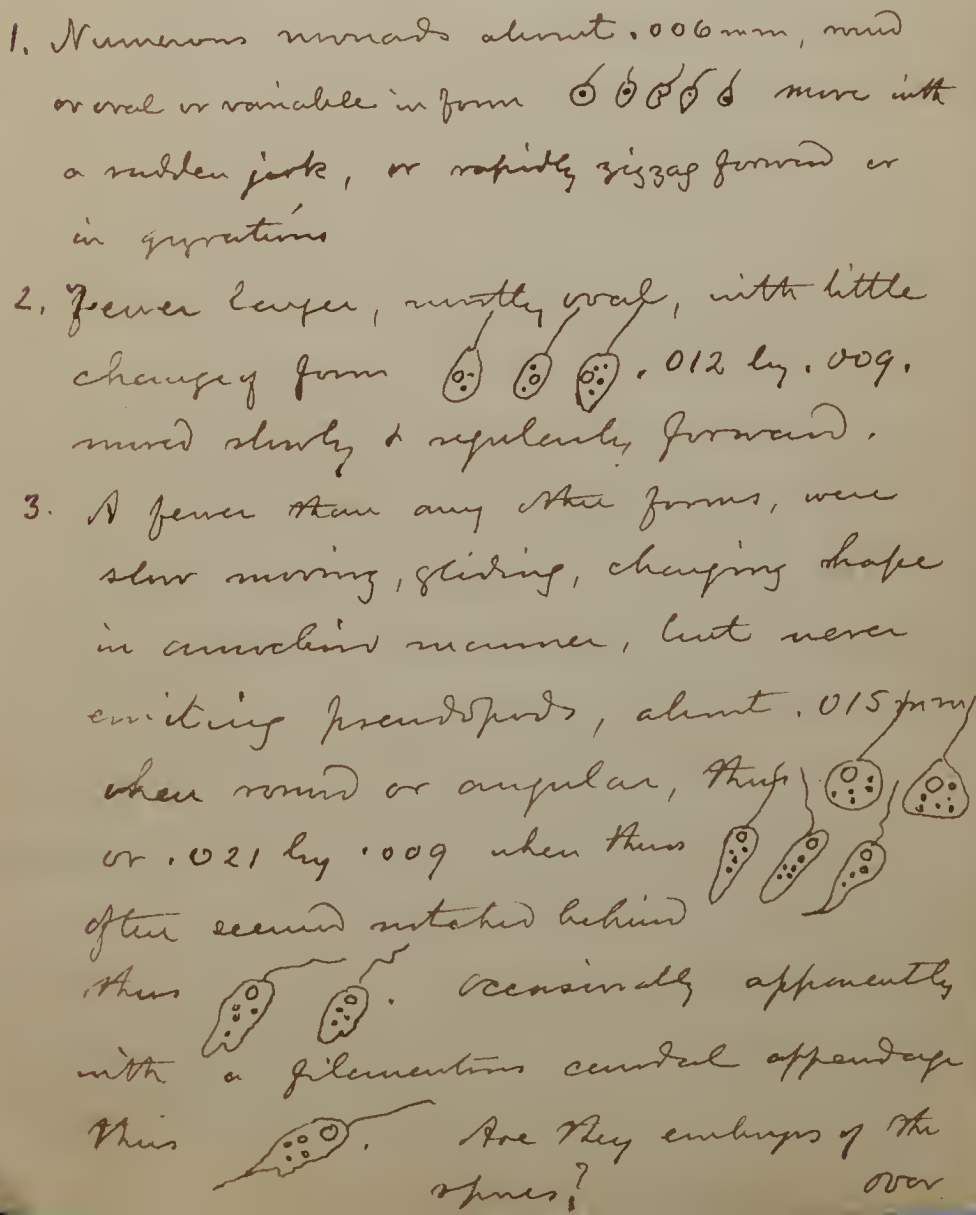 1. Numerous monads about .006 mm, round
or oval or variable in form move with
a sudden jerk, or rapidly zigzag forward or
in gyrations
2. Fewer larger, mostly oval, with little
change of form .012 by .009.
moved slowly & regularly forward.
3. A fewer than any other forms, were
slow moving, gliding, changing shape
in amoeboid manner, but never
emitting pseudopods, about .015 mm
when round or angular, thus
or .021 by .009 when thus
often seemed notched behind
thus . Occasionally apparently
with a filamentous caudal appendage
thus . Are they embryos of the
spores?
over